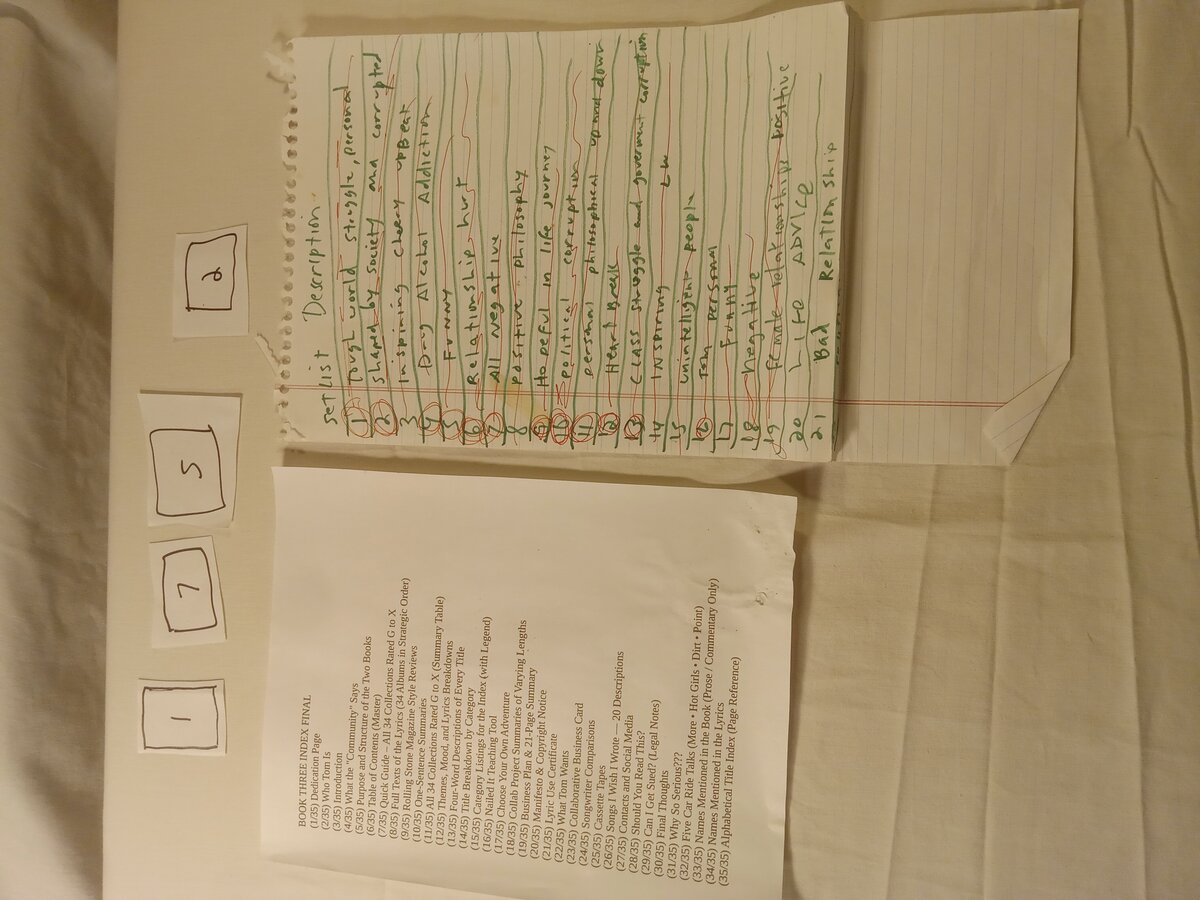 1
7
5
2
BOOK THREE INDEX FINAL
(1/35) Dedication Page
(2/35) Who Tom Is
(3/35) Introduction
(4/35) What the "Community" Says
(5/35) Purpose and Structure of the Two Books
(6/35) Table of Contents (Master)
(7/35) Quick Guide – All 34 Collections Rated G to X
(8/35) Full Texts of the Lyrics (34 Albums in Strategic Order)
(9/35) Rolling Stone Magazine Style Reviews
(10/35) One-Sentence Summaries
(11/35) All 34 Collections Rated G to X (Summary Table)
(12/35) Themes, Mood, and Lyrics Breakdowns
(13/35) Four-Word Descriptions of Every Title
(14/35) Title Breakdown by Category
(15/35) Category Listings for the Index (with Legend)
(16/35) Nailed It Teaching Tool
(17/35) Choose Your Own Adventure
(18/35) Collab Project Summaries of Varying Lengths
(19/35) Business Plan & 21-Page Summary
(20/35) Manifesto & Copyright Notice
(21/35) Lyric Use Certificate
(22/35) What Tom Wants
(23/35) Collaborative Business Card
(24/35) Songwriter Comparisons
(25/35) Cassette Tapes
(26/35) Songs I Wish I Wrote — 20 Descriptions
(27/35) Contacts and Social Media
(28/35) Should You Read This?
(29/35) Can I Get Sued? (Legal Notes)
(30/35) Final Thoughts
(31/35) Why So Serious???
(32/35) Five Car Ride Talks (More • Hot Girls • Dirt • Point)
(33/35) Names Mentioned in the Book (Prose / Commentary Only)
(34/35) Names Mentioned in the Lyrics
(35/35) Alphabetical Title Index (Page Reference)
Set LIST Description
1 Tough world struggle, personal
2 Shaped by society and corrupted
3 Inspiring cheery upBeat
4 Drug Alcohol Addiction
5 Funny
6 Relationship hurt
7 All negative
8 positive philosophy
9 Hopeful in life journey
10 political corruption
11 personal philosophical up and down
12 Heart Break
13 CLASS struggle and goverment corruption
14 INSPIRING
15 unintelligent people
16 Tom personal
17 Funny
18 Negative
19 female relationships positive
20 Life ADVICE
21 Bad Relationship